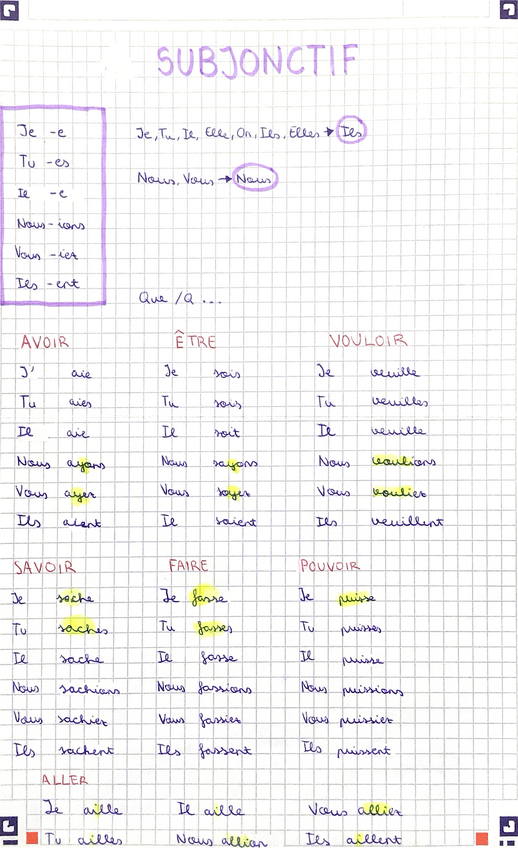 SUBJONCTIF
Je -e
Tu -es
Il -e
Nous - ions
Vous -iez
Ils -ent
Je, Tu, Il, Elle, On, Ils, Elles → Ils
Nous, Vous → Nous
Que /Q ...
AVOIR ÊTRE VOULOIR
J' aie Je sois Je veuille
Tu aies Tu sois Tu veuilles
Il aie Il soit Il veuille
Nous ayons Nous soyons Nous voulions
Vous ayez Vous soyez Vous vouliez
Ils aient Il soient Ils veuillent
SAVOIR FAIRE POUVOIR
Je sache Je fasse Je puisse
Tu saches Tu fasses Tu puisses
Il sache Il fasse Il puisse
Nous sachions Nous fassions Nous puissions
Vous sachiez Vous fassiez Vous puissiez
Ils sachent Ils fassent Ils puissent
ALLER
Je aille Il aille Vous alliez
Tu ailles Nous allion Ils aillent